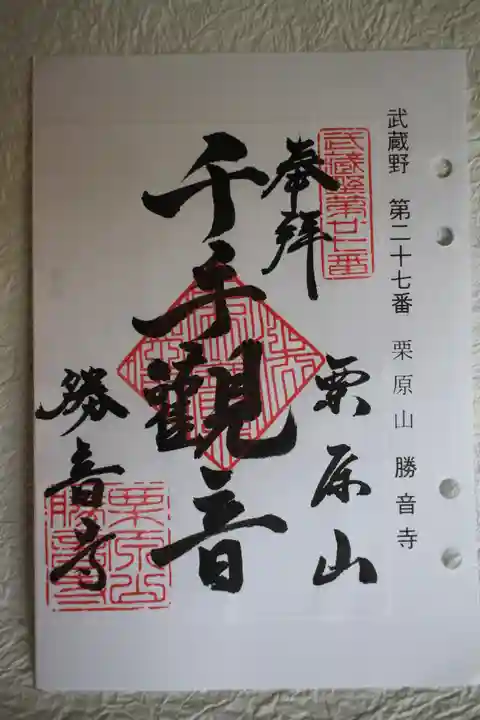 武蔵野 第二十七番 栗原山 勝音寺
武蔵野第廿七番
奉拝
栗原山
千手觀音
勝音寺
栗原山
勝音寺